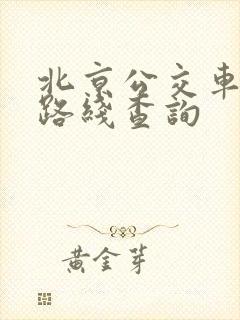 北京公交車
路綫查詢
黃金芽